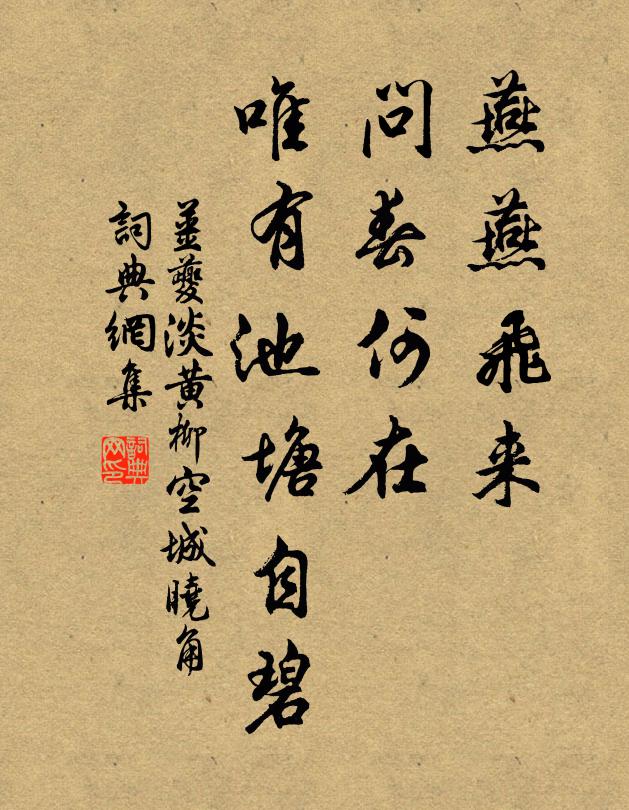 燕燕飛来
問春何在
唯有池塘自碧
姜夔淡黄柳空城曉角
詞典網集
詞典网印